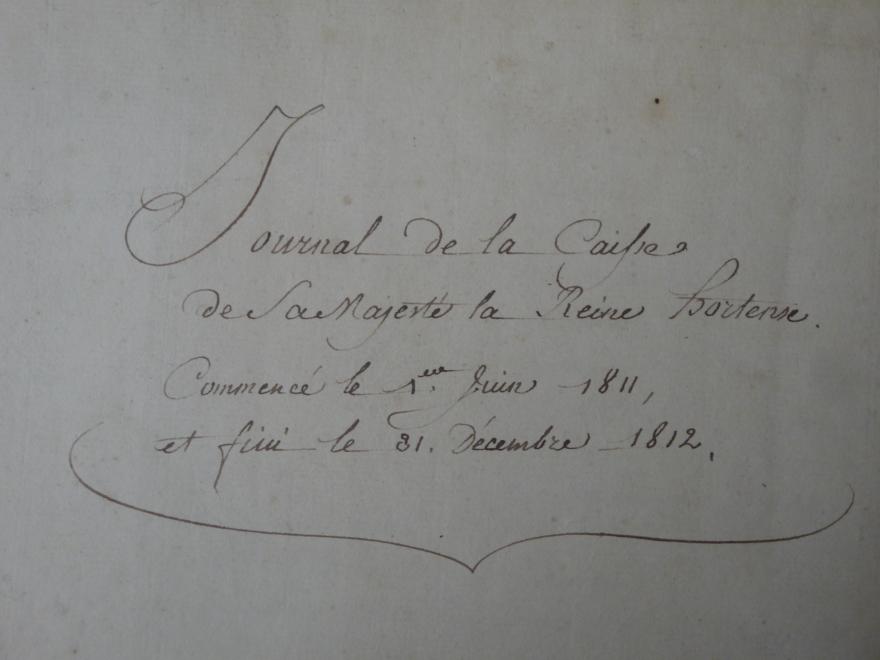 Journal de la Caisse
de Sa Majesté la Reine hortense.
Commencé le 1er. Juin 1811,
et fini le 31. Décembre 1812.